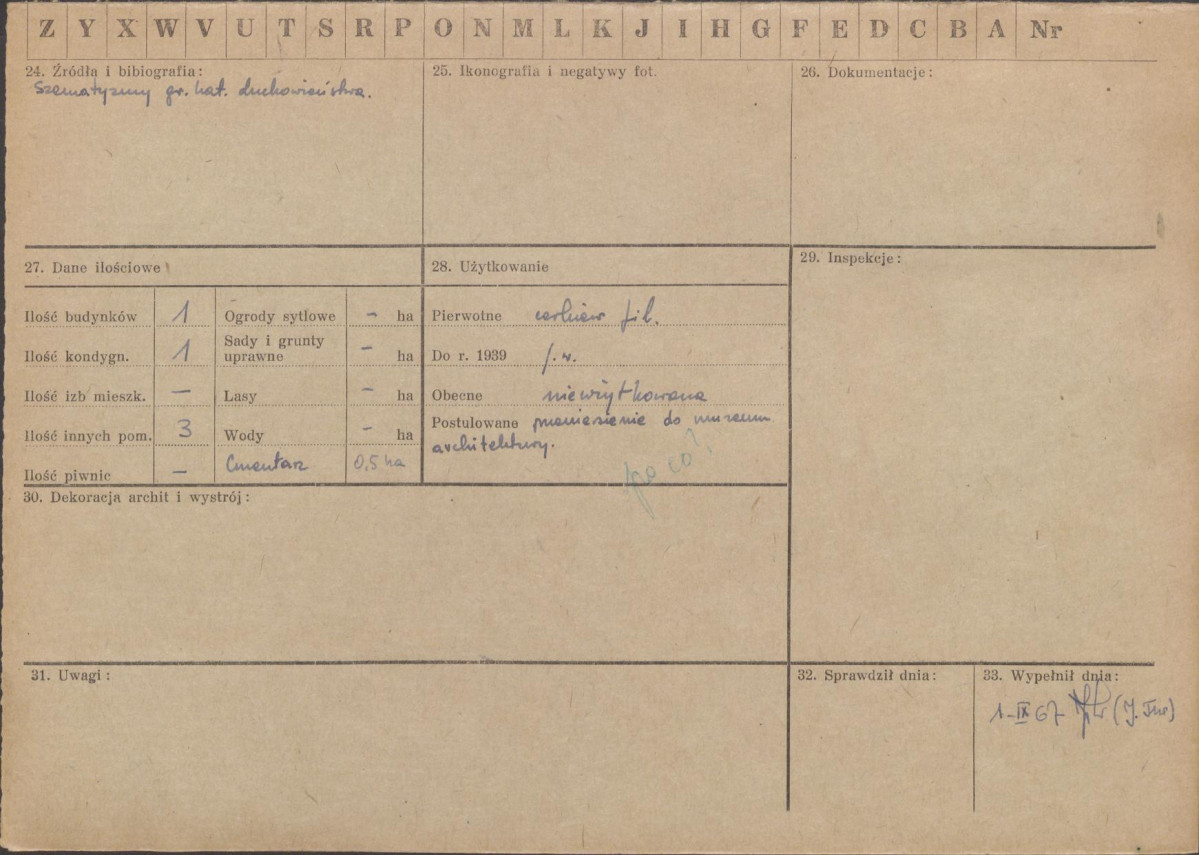 Z Y X W V U T S R P O N M L K J I H G F E D C B A Nr
24. Źródła i bibiografia:
Szematyzmy gr. kat. duchowieństwa.
25. Ikonografia i negatywy fot.
26. Dokumentacje:
27. Dane ilościowe
Ilość budynków 1 Ogrody sytlowe - ha
Ilość kondygn. 1 Sady i grunty
uprawne - ha
Ilość izb mieszk. — Lasy - ha
Ilość innych pom. 3 Wody - ha
Ilość piwnic — Cmentarz 0,5 ha
28. Użytkowanie
Pierwotne cerkiew fil.
Do r. 1939 j.w.
Obecne nieużytkowana
Postulowane przeniesienie do muzeum
architektury.
po co?
29. Inspekcje:
30. Dekoracja archit i wystrój:
31. Uwagi:
32. Sprawdził dnia:
33. Wypełnił dnia:
1-IX 67 (J. Tur)